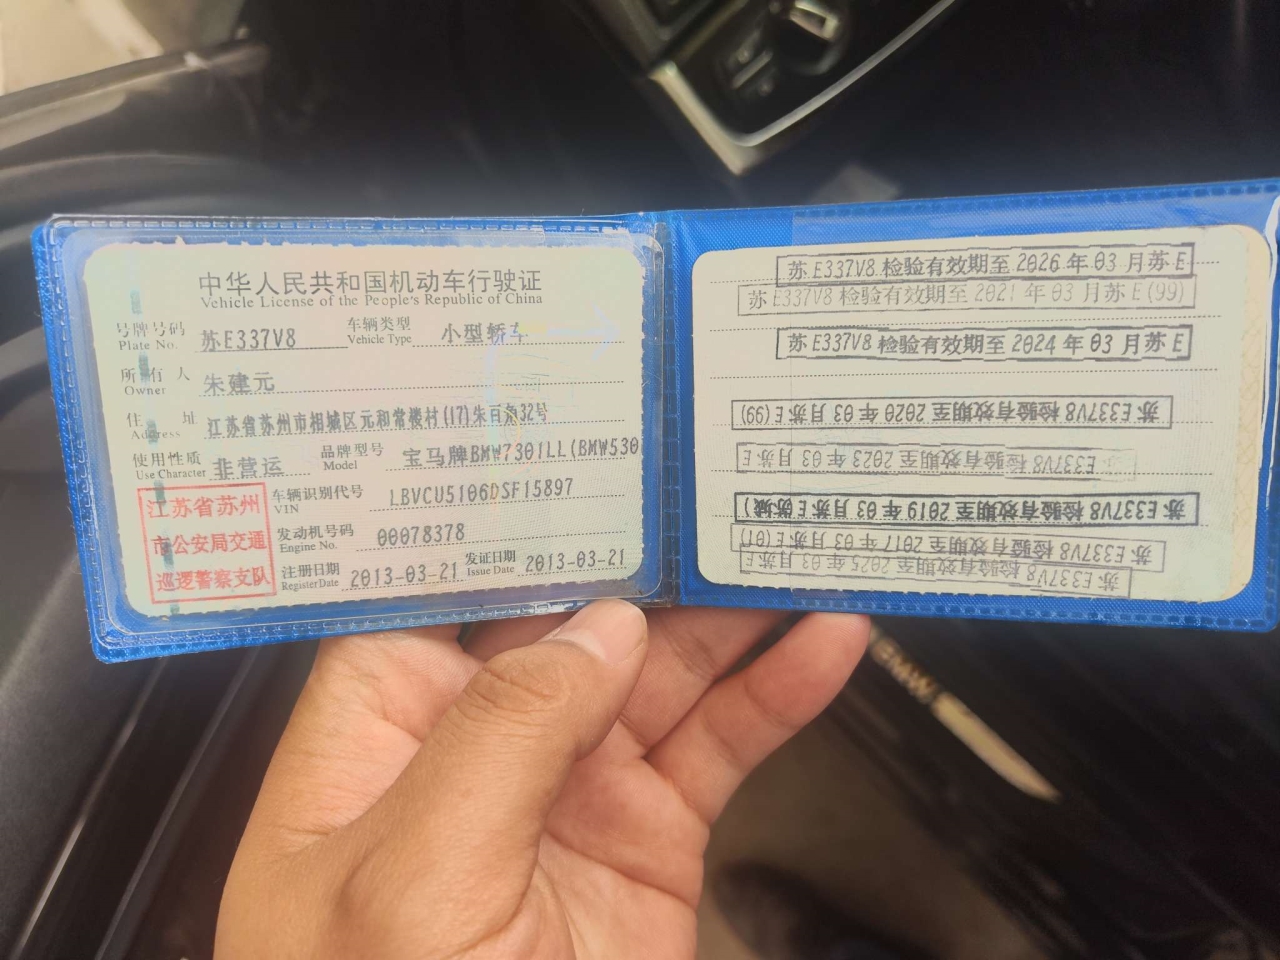 中华人民共和国机动车行驶证
Vehicle License of the People's Republic of China
号牌号码 苏E337V8 车辆类型 小型轿车
Plate No. Vehicle Type
所有人 朱建元
Owner
住址 江苏省苏州市相城区元和常楼村(17)朱百泉32号
Address
使用性质 非营运 品牌型号 宝马牌BMW7301LL(BMW530
Use Character Model
江苏省苏州
市公安局交通
巡逻警察支队
车辆识别代号 LBVCU5106DSF15897
VIN
发动机号码 00078378
Engine No.
注册日期 2013-03-21 发证日期 2013-03-21
Register Date Issue Date
苏E337V8 检验有效期至2026年03月苏E
苏E337V8 检验有效期至2021年03月苏E(99)
苏E337V8 检验有效期至2024年03月苏E
苏E337V8 检验有效期至2020年03月苏E(99)
苏E337V8 检验有效期至2023年03月苏E
苏E337V8 检验有效期至2019年03月苏E(苏城)
苏E337V8 检验有效期至2017年03月苏E(01)
苏E337V8 检验有效期至2025年03月苏E
BMW